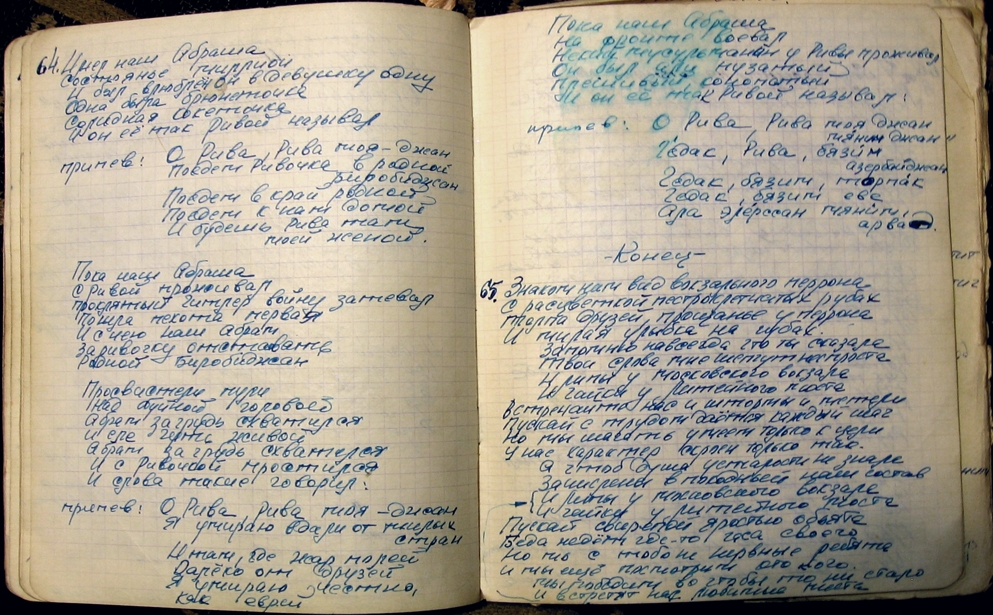 64. Имел наш Абраша
Состоянье миллион
И был влюблён он в девушку одну
Она была брюнеточка
Солидная кокеточка
И он её так Ривой называл
припев: О Рива, Рива моя-джан
Поедем Ривочка в родной
Биробиджан
Поедем в край родной
Поедем к нам домой
И будешь Рива там
моей женой.
Пока наш Абраша
с Ривой проживал
Проклятый Гитлер войну затевал
Пошла пехота первая
И с нею наш Абрам
За Ривочку отстаивать
Родной Биробиджан
Просвистели пули
Над буйной головой
Абрам за грудь схватился
И еле чуть живой
Абрам за грудь схватился
И с Ривочкой простился
И слова такие говорил:
припев: О Рива, Рива моя-джан
Я умираю вдали от милых
стран
И там, где жар полей
Далёко от друзей
Я умираю честно,
как еврей
Пока наш Абраша
На фронте воевал
Некий мусульманин у Ривы проживал
Он был пузатый
конопатый
И он её так Ривой называл:
припев: О Рива, Рива моя джан
джан"
Гедак, Рива, бязим
азербайджан
Гедак, бязим, торпак
Гедак, бязим еве
-Конец-
65. Знаком нам вид вокзального перрона
С расцветкой пестроклетчатых рубах
Толпа друзей, прощанье у перрона
И милая улыбка на губах.
Запомню навсегда что ты сказала
Твои слова мне
у московского вокзала
И чайки у Литейного моста
Встречают нас и штормы и метели
Пускай с трудом даётся каждый шаг
Но мы шагать умеем только к цели
У нас характер скроен только так.
А чтоб душа усталости не знала
Зачислены в походный наш состав
у московского вокзала
И чайки у Литейного моста
Пускай свирепой яростью объята
Беда где-то часа своего
Но мы с тобой не нервные ребята
И мы ещё посмотрим кто кого.
И встретят нас любимые места